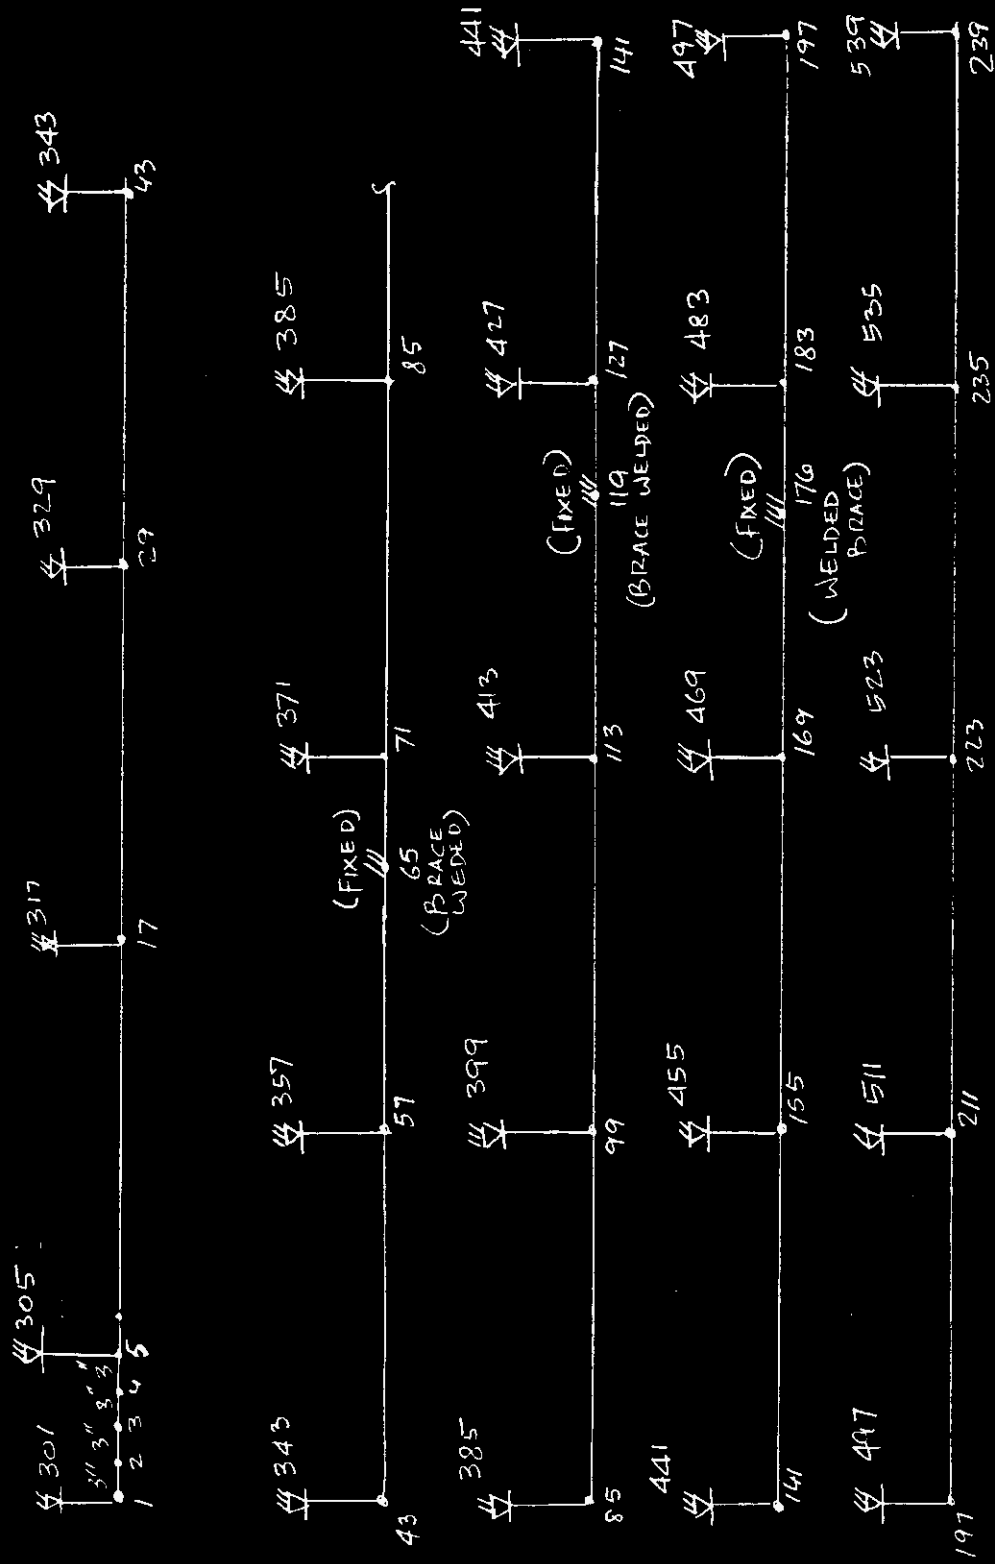 301 305 317 329 343
3" 3" 3" 3"
1 2 3 4 5 17 29 43
343 357 371 385
(FIXED)
43 57 65 71 85
(BRACE
WEDED)
385 399 413 427 441
(FIXED)
85 99 113 119 127 141
(BRACE WELDED)
441 455 469 483 497
(FIXED)
141 155 169 176 183 197
(WELDED
BRACE)
497 511 523 535 539
197 211 223 235 239